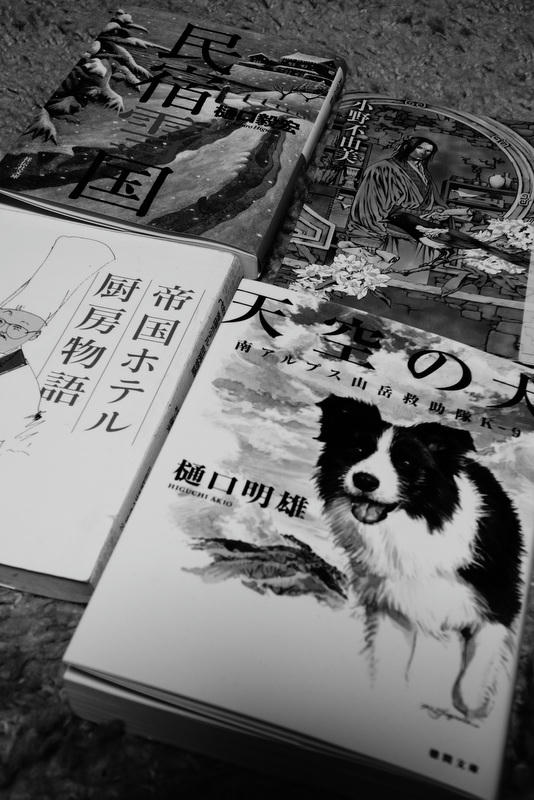 民宿雪国
樋口毅宏
小野不由美
帝国ホテル
厨房物語
天空の犬
南アルプス山岳救助隊K-9
樋口明雄
HIGUCHI AKIO
徳間文庫